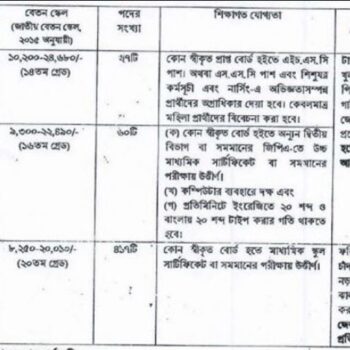 বেতন স্কেল
(জাতীয় বেতন স্কেল,
২০১৫ অনুযায়ী)
পদের
সংখ্যা
শিক্ষাগত যোগ্যতা
১০,২০০-২৪,৬৮০/-
(১৪তম গ্রেড)
২৭টি
কোন স্বীকৃত প্রাপ্ত বোর্ড হইতে এইচ.এস.সি
পাশ। অথবা এস.এস.সি পাশ এবং শিশুযত্ন
কর্মসূচী এবং নার্সিং-এ অভিজ্ঞতাসম্পন্ন
প্রার্থীদের অগ্রাধিকার দেয়া হবে। কেবলমাত্র
মহিলা প্রার্থীদের বিবেচনা করা হবে।
৯,৩০০-২২,৪৯০/-
(১৬তম গ্রেড)
৬০টি
(ক) কোন স্বীকৃত বোর্ড হইতে অন্যুন দ্বিতীয়
বিভাগ বা সমমানের জিপিএ-তে উচ্চ
মাধ্যমিক সার্টিফিকেট বা সমমানের
পরীক্ষায় উত্তীর্ণ।
(খ) কম্পিউটার ব্যবহারে দক্ষ এবং
(গ) প্রতিমিনিটে ইংরেজিতে ২০ শব্দ ও
বাংলায় ২০ শব্দ টাইপ করার গতি থাকতে
হবে।
৮,২৫০-২০,০১০/-
(২০তম গ্রেড)
৪১৭টি
কোন স্বীকৃত বোর্ড হতে মাধ্যমিক স্কুল
সার্টিফিকেট বা সমমানের পরীক্ষায় উত্তীর্ণ।